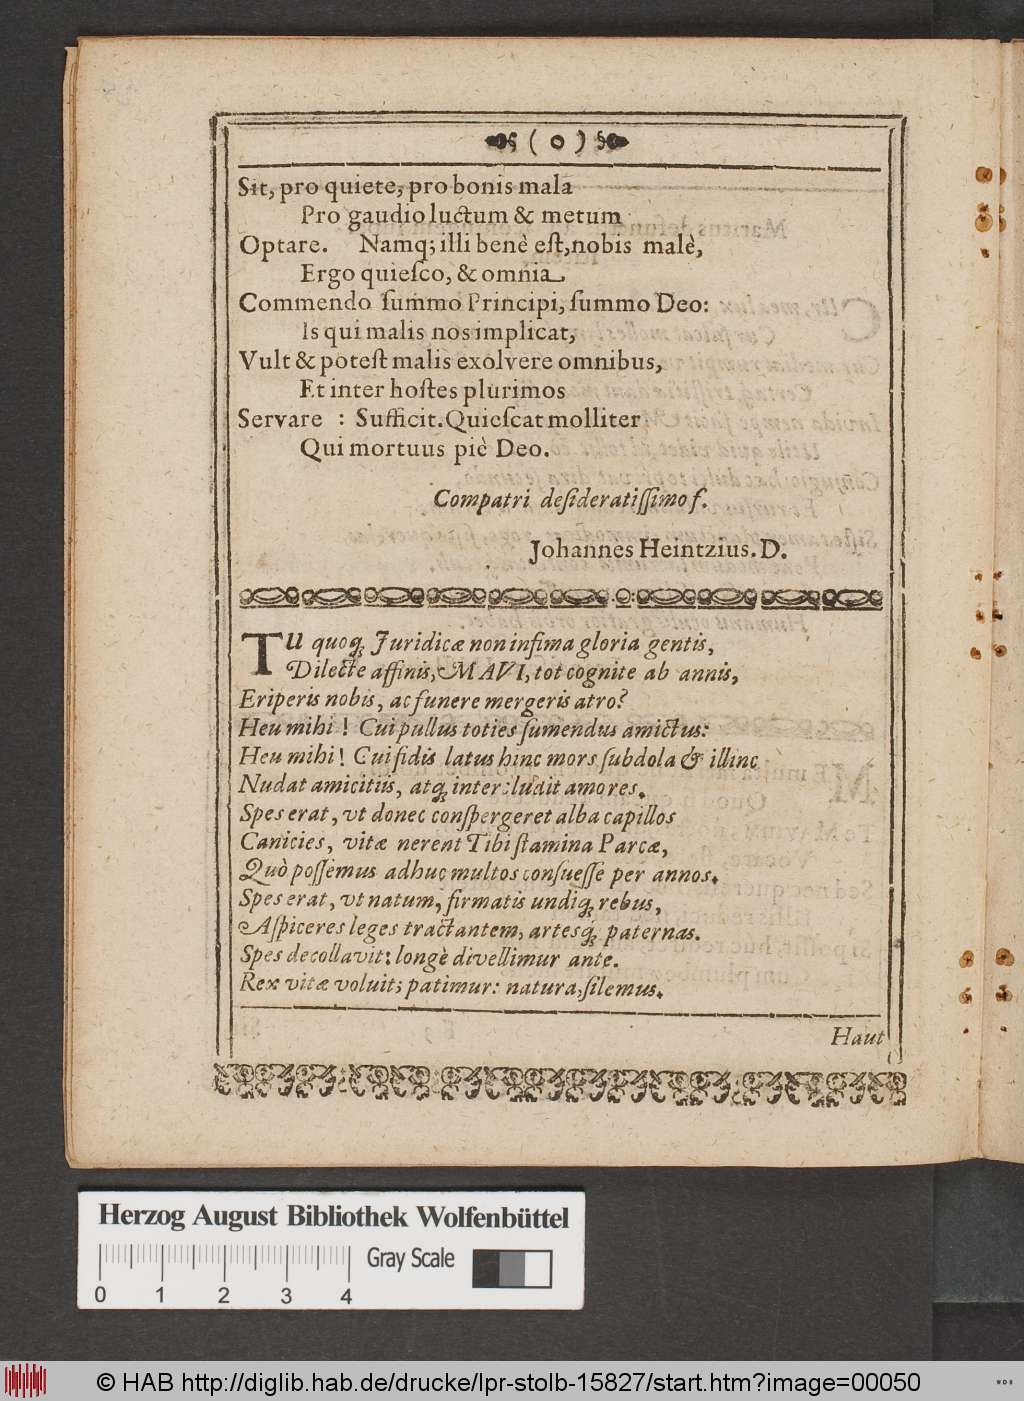 ( o )
Sit, pro quiete, pro bonis mala
Pro gaudio luctum & metum
Optare. Namq; illi benè eſt, nobis malè,
Ergo quieſco, & omnia
Commendo ſummo Principi, ſummo Deo:
Is qui malis nos implicat,
Vult & poteſt malis exolvere omnibus,
Et inter hoſtes plurimos
Servare : Sufficit. Quieſcat molliter
Qui mortuus piè Deo.
Compatri deſideratiſſimo f.
Johannes Heintzius. D.
TU quoq; Juridicæ non infima gloria gentis,
Dilecte affinis, MAVI, tot cognite ab annis,
Eriperis nobis, ac funere mergeris atro?
Heu mihi! Cui pullus toties ſumendus amictus:
Heu mihi! Cui fidis latus hinc mors ſubdola & illinc
Nudat amicitiis, atq; intercludit amores.
Spes erat, vt donec conſpergeret alba capillos
Canicies, vitæ nerent Tibi ſtamina Parcæ,
Quò poſſemus adhuc multos conſueſſe per annos.
Spes erat, vt natum, firmatis undiq; rebus,
Aſpiceres leges tractantem, artesq́; paternas.
Spes decollavit: longè divellimur ante.
Rex vitæ voluit; patimur: natura, ſilemus.
Haut
Herzog August Bibliothek Wolfenbüttel
Gray Scale
0 1 2 3 4
© HAB http://diglib.hab.de/drucke/lpr-stolb-15827/start.htm?image=00050